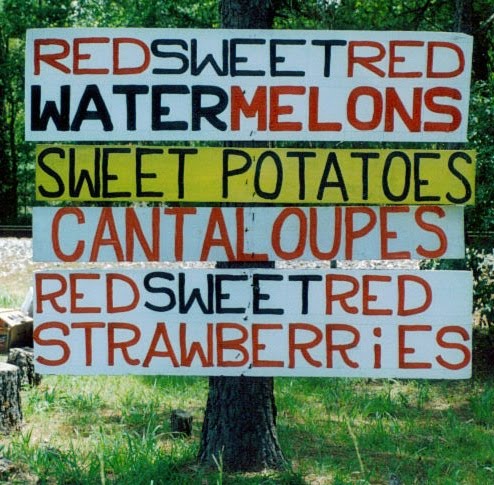 REDSWEETRED
WATERMELONS
SWEET POTATOES
CANTALOUPES
REDSWEETRED
STRAWBERRiES